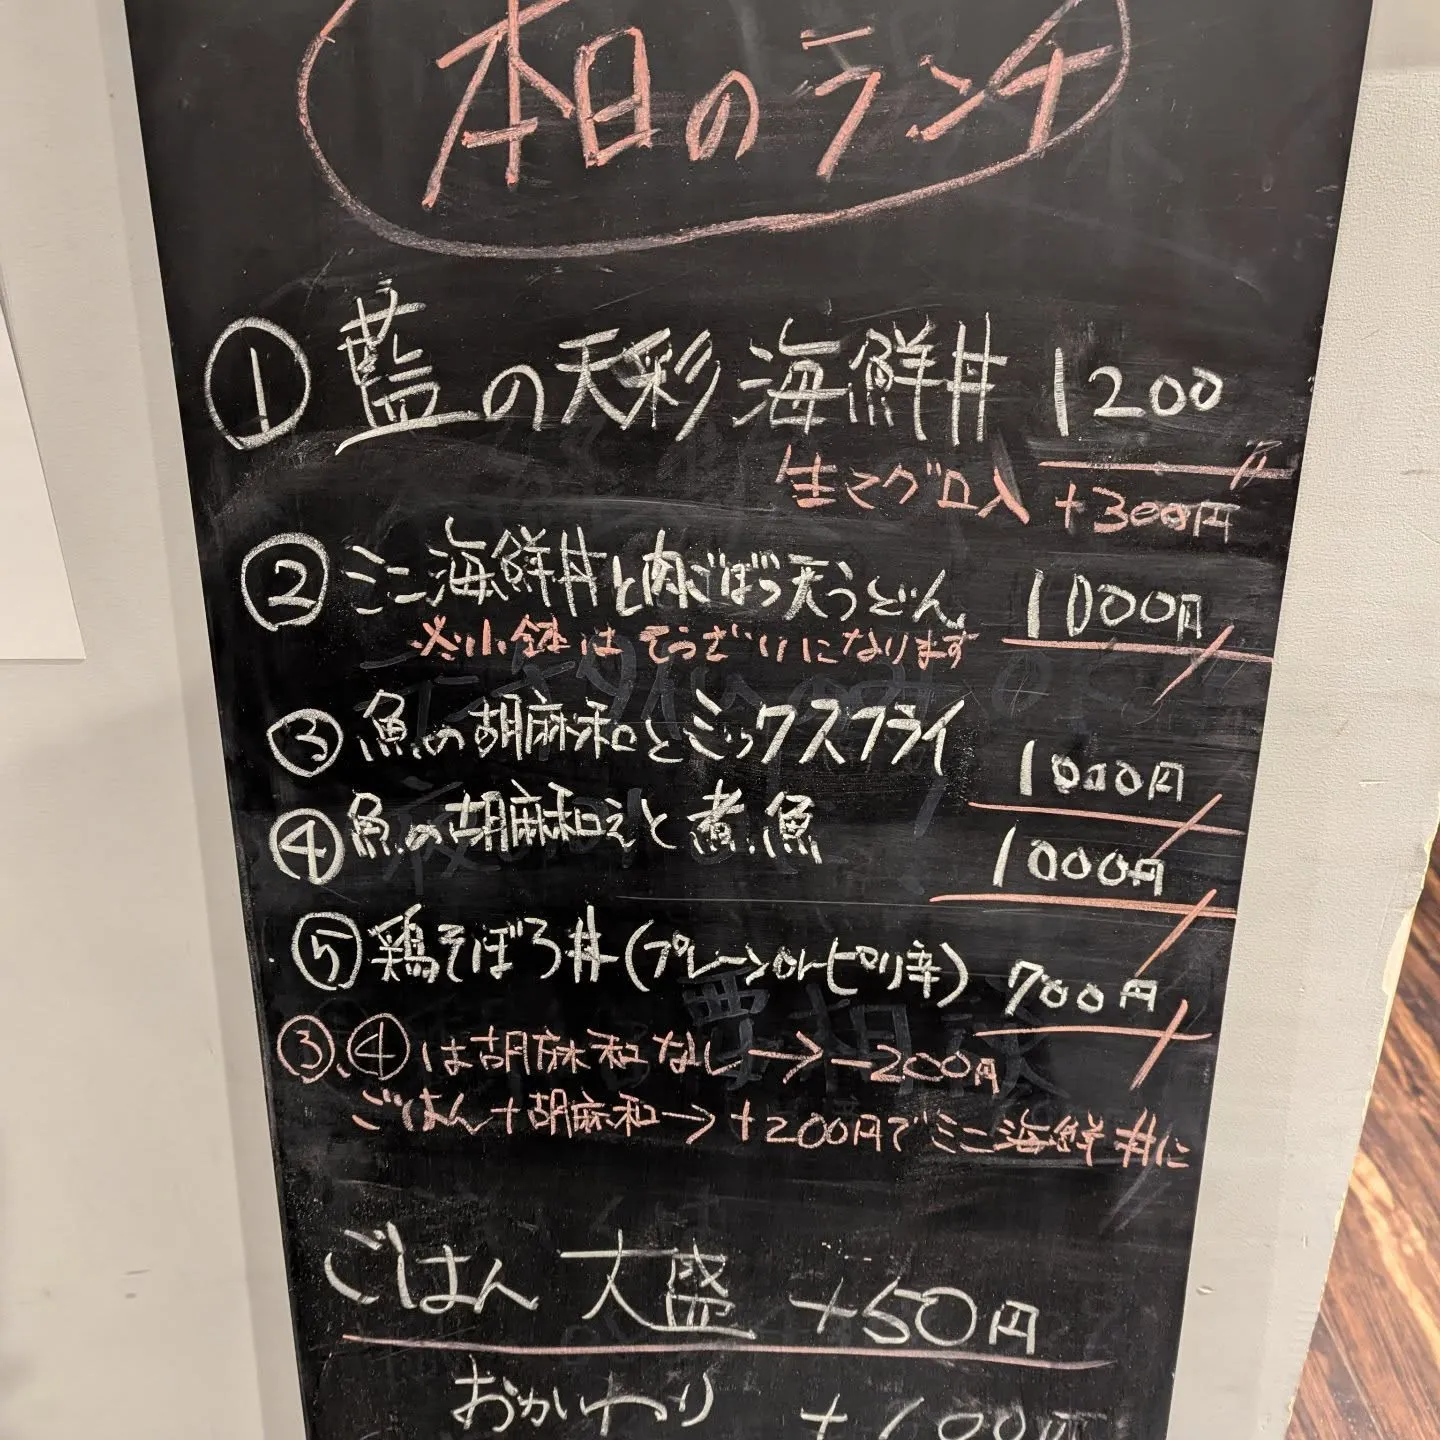 本日のランチ
① 藍の天彩海鮮丼 1200
生マグロ入 +300円
② ミニ海鮮丼と肉ごぼう天うどん 1000円
※小鉢はそうざいになります
③ 魚の胡麻和とミックスフライ 1000円
④ 魚の胡麻和えと煮魚 1000円
⑤ 鶏そぼろ丼(プレーンorピリ辛) 700円
③、④は胡麻和なし→−200円
ごはん+胡麻和→+200円でミニ海鮮丼に
ごはん 大盛 +50円
おかわり +100円